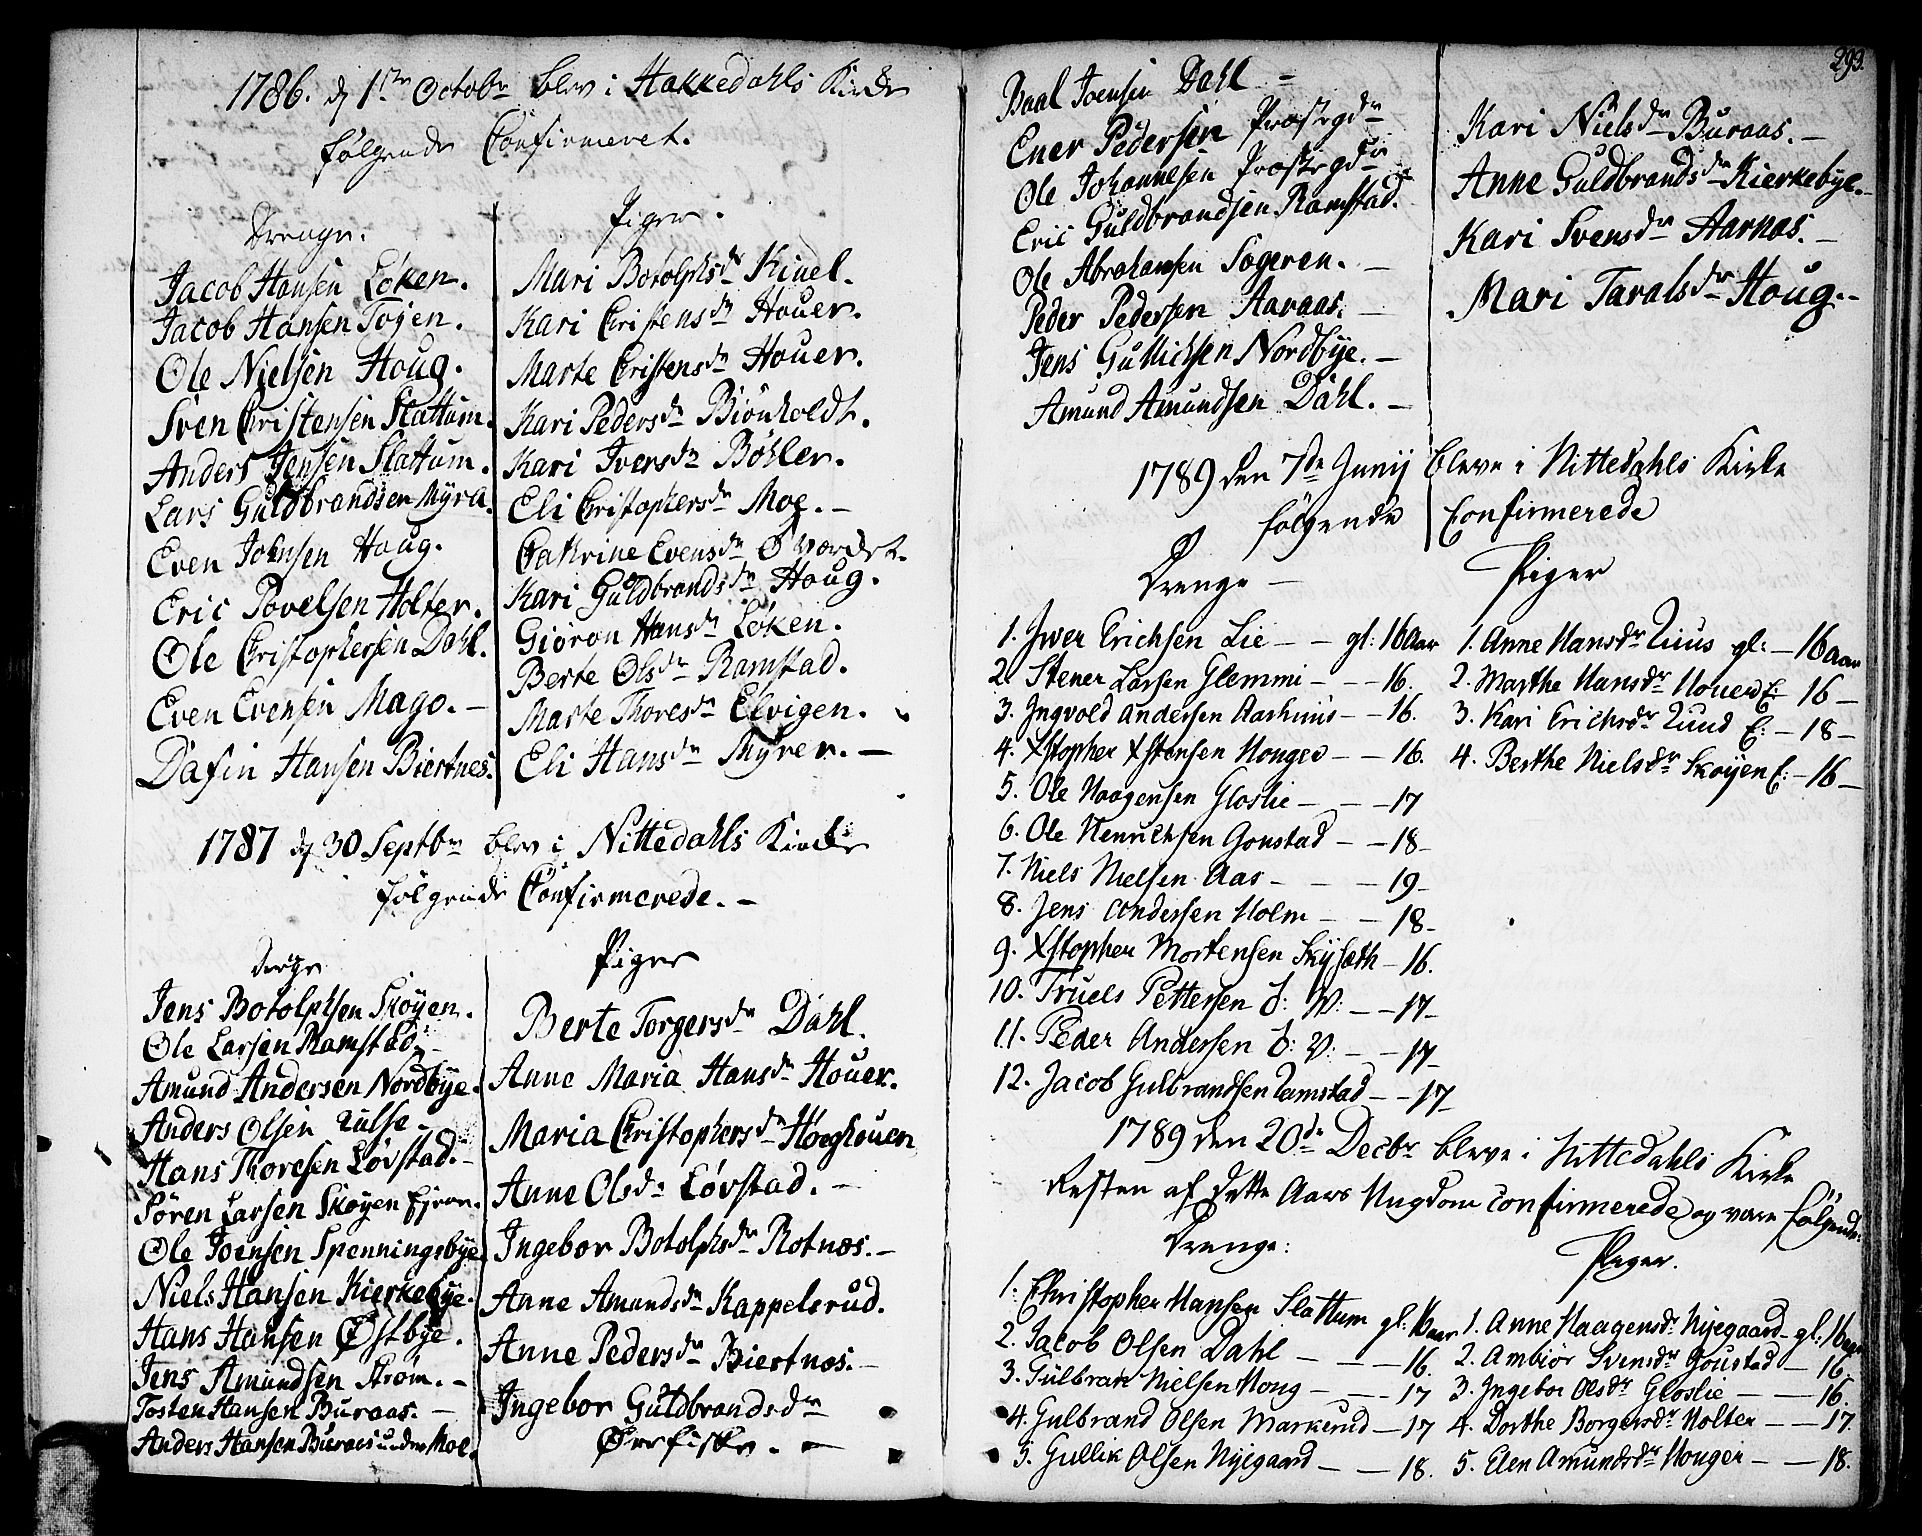 1786. d 1ste Octobr blev i Hakkedahls Kirke
følgende Confirmeret.
Drenge.
Jacob Hansen Løken.
Jacob Hansen Tøyen.
Ole Nielsen Houg.
Sven Christensen Slattum.
Anders Jensen Slattum.
Lars Guldbrandsen Myra.
Even Johnsen Houg.
Eric Povelsen Holter.
Ole Christophersen Dahl.
Even Evensen Mago. -
Dafin Hansen Biertnes.
Piger.
Mari Botolphsdr Kinel.
Kari Christensdr Houer.
Marte Cristensdr Houer.
Kari Pedersdr Biönholdt.
Kari Iversdr Böhler.
Eli Christophersdr Moe. -
Cathrine Evensdr Ø
Kari Guldbrandsdr Houg.
Giøron Hansdr Løken.
Berte Olsdr Ramstad.
Marte Thoresdr Elvigen.
Eli Hansdr Myrer. -
1787 d 30 Septbr blev i Nittedahls Kirke
følgende Confirmerede. -
Jens Botolphsen Skøyen.
Ole Larsen Ramstad
Amund Andersen Nordbye.
Anders Olsen
Hans Thoresen Løvstad. -
Søren Larsen Skøyen
Ole Joensen Spenningsbye
Niels Hansen Kierkebye.
Hans Hansen Østbye.
Jens Amundsen Strøm. -
Tosten Hansen Buraas. -
Anders Hansen Buraas under Moe.
Piger
Berte Torgersdr Dahl.
Anne Maria Hansdr Houer.
Maria Christophersdr Høeghouen
Anne Olsdr Løvstad. -
Ingebor Botolphsdr Rotnæs. -
Anne Amundsdr Kappelsrud.
Anne Pedersdr Biertnæs. -
Ingebor Guldbrandsdr
Ørefiske. -
293.
Paal Joensen Dahl -
Ener Pedersen Præstegdn
Ole Johannesen Præstegdn
Eric Guldbrandsen Ramstad.
Ole Abrahamsen Sogeren. -
Peder Pedersen Aaraas. -
Jens Gullichsen Nordbye. -
Amund Amundsen Dahl. -
Kari Nielsdr Buraas. -
Anne Guldbrandsdr Kierkebye. -
Kari Svensdr Aarnæs. -
Mari Taralsdr Houg. -
1789 den 7de Junij bleve i Nittedahls Kirke
følgende Confirmerede
Drenge -
1. Iwer Erichsen Lie - - gl: 16 Aar
2. Stener Larsen Glemmi - - 16.
3. Ingvold Andersen - - 16.
4. Xstopher Xstensen Houger - - 16.
5. Ole Haagensen Gloslie - - - 17
6. Ole Henrichsen Gonstad - - 18 -
7. Niels Nielsen Aas - - - 19 -
8. Jens Andersen Holm - - 18 -
9. Xstopher Mortensen Skysæth - 16.
10. Truels Pettersen S: W: - - 17 -
11. Peder Andersen S: V: - - 17 -
12. Jacob Gulbrandsen Ramstad - - 17 -
Piger
1. Anne Hansdr gl: - 16 Aar
2. Marthe Hansdr Houer E: 16 -
3. Kari Erichsdr E: - 18 -
4. Berthe Nielsdr Skøyen E: - 16 -
1789 den 20de Decbr bleve i Nittedahls Kirke
Resten af dette Aars Ungdom confirmerede og vare følgende:
Drenge:
1. Christopher Hansen Slattum gl: 16 aar
2. Jacob Olsen Dahl - - - 16.
3. Gulbran Nielsen Houg - - - 17
4. Gulbrand Olsen Markerud - 17
5. Gullik Olsen Nyegaard - - 18.
Piger.
1. Anne Haagensdr Nyegaard - gl: 16 aar
2. Ambiør Svensdr Goustad - 16.
3. Ingebor Olsdr Gloslie - - 16.
4. Dorthe Borgersdr Holter - - 17.
5. Elen Amundsdr Houger - - 18.